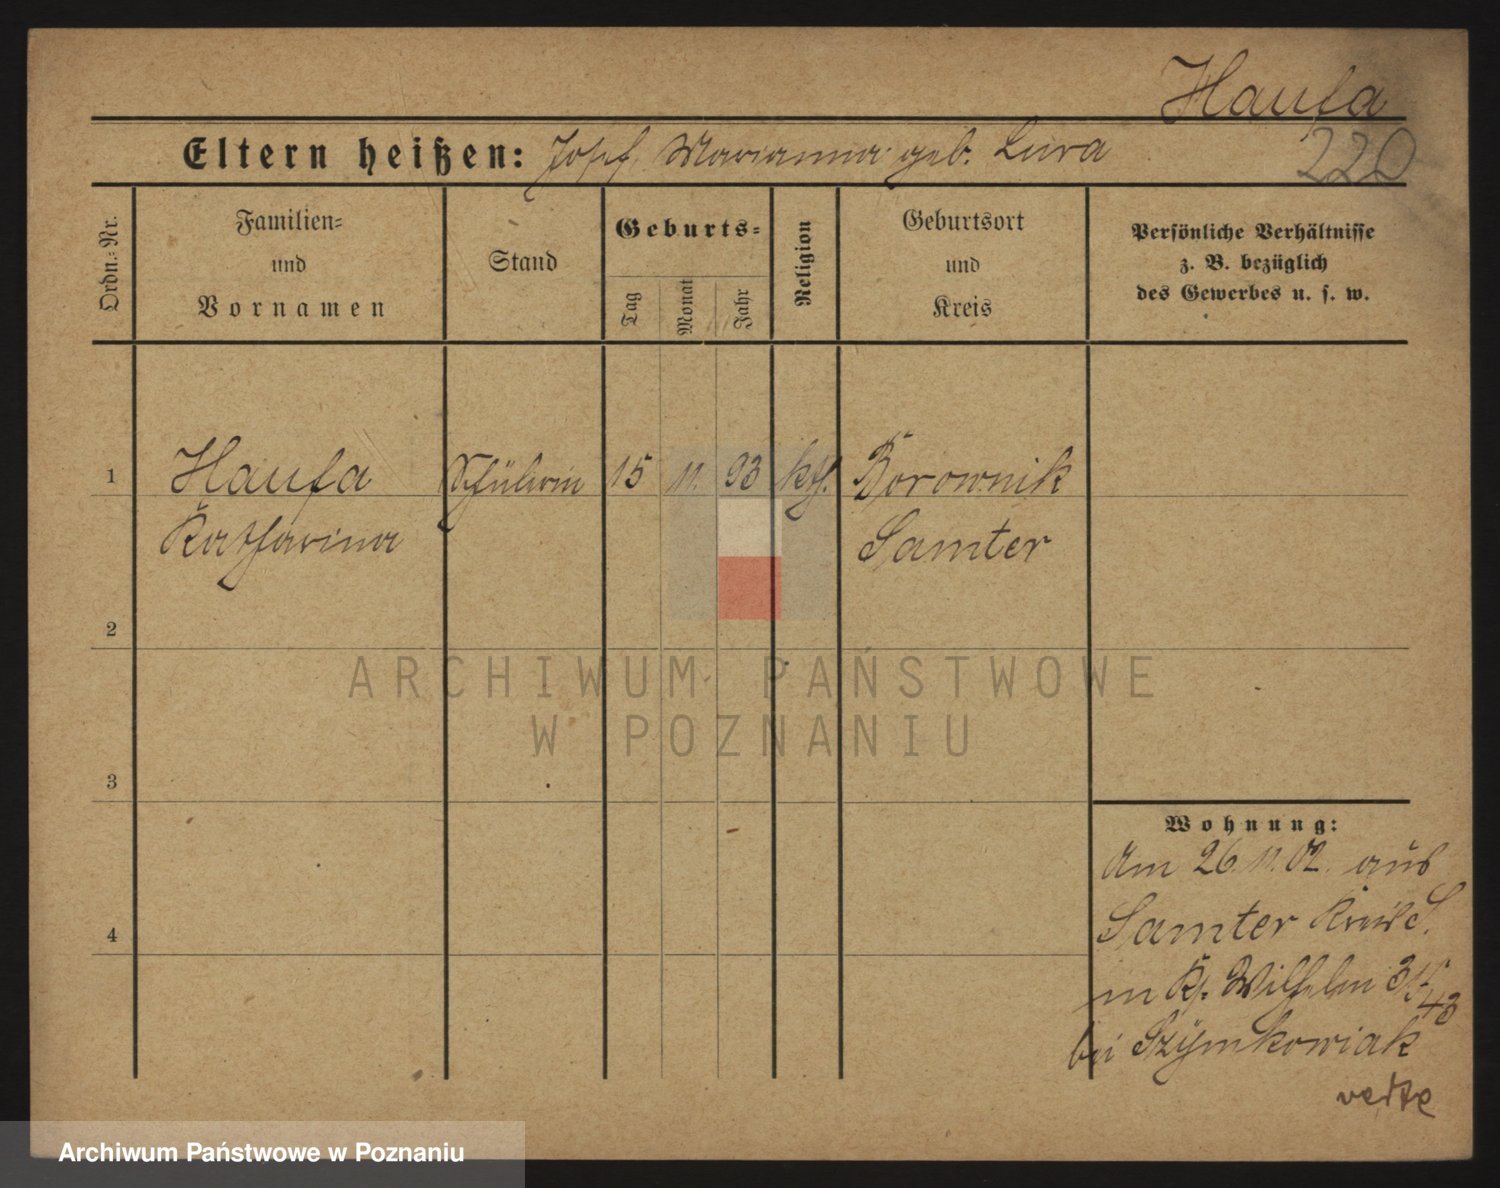 Haufa
220
Eltern heißen: Josef, Marianna geb. Lura
Ordn.-Nr.
Familien-
und
Vornamen
Stand
Geburts-
Tag
Monat
Jahr
Religion
Geburtsort
und
Kreis
Persönliche Verhältnisse
z. B. bezüglich
des Gewerbes u. s. w.
1 Haufa Schülerin 15 11. 93 kth. Borownik
Katharina Samter
2
3
4
Wohnung:
Am 26.11.02. aus
Samter Kreis S.
in K. Wilhelm 315/43
bei Szymkowiak
verte
ARCHIWUM PAŃSTWOWE
W POZNANIU
Archiwum Państwowe w Poznaniu